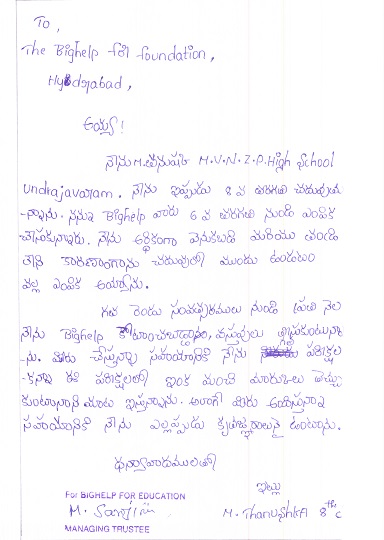 To,
The Bighelp for foundation,
Hyderabad,
అయ్యా!
నేను M. తనుష్క M.V.N.Z.P. High School
Undrajavaram. నేను ఇప్పుడు 8 వ తరగతి చదువుతు
-న్నాను. నన్ను Bighelp వారు 6 వ తరగతి నుండి ఎంపిక
చేసుకున్నారు. నేను ఆర్థికంగా వెనుకబడి మరియు తండ్రి
లేని కారణంగాను చదువులో ముందు ఉండటం
వల్ల ఎంపిక అయ్యాను.
గత రెండు సంవత్సరములు నుండి ప్రతి నెల
నేను Bighelp వస్తువులు తీసుకుంటున్నా
-ను. మీరు చేస్తున్న సహాయానికి నేను పరీక్షల
కన్నా ఈ పరీక్షలలో ఇంకా మంచి మార్కులు తెచ్చు
కుంటానని మాట ఇస్తున్నాను. అలాగే మీరు అందిస్తున్న
సహాయానికి నేను ఎల్లప్పుడు కృతజ్ఞురాలునై ఉంటాను.
ధన్యవాదములతో
ఇట్లు
For BIGHELP FOR EDUCATION
M. Thanushka 8th C
MANAGING TRUSTEE